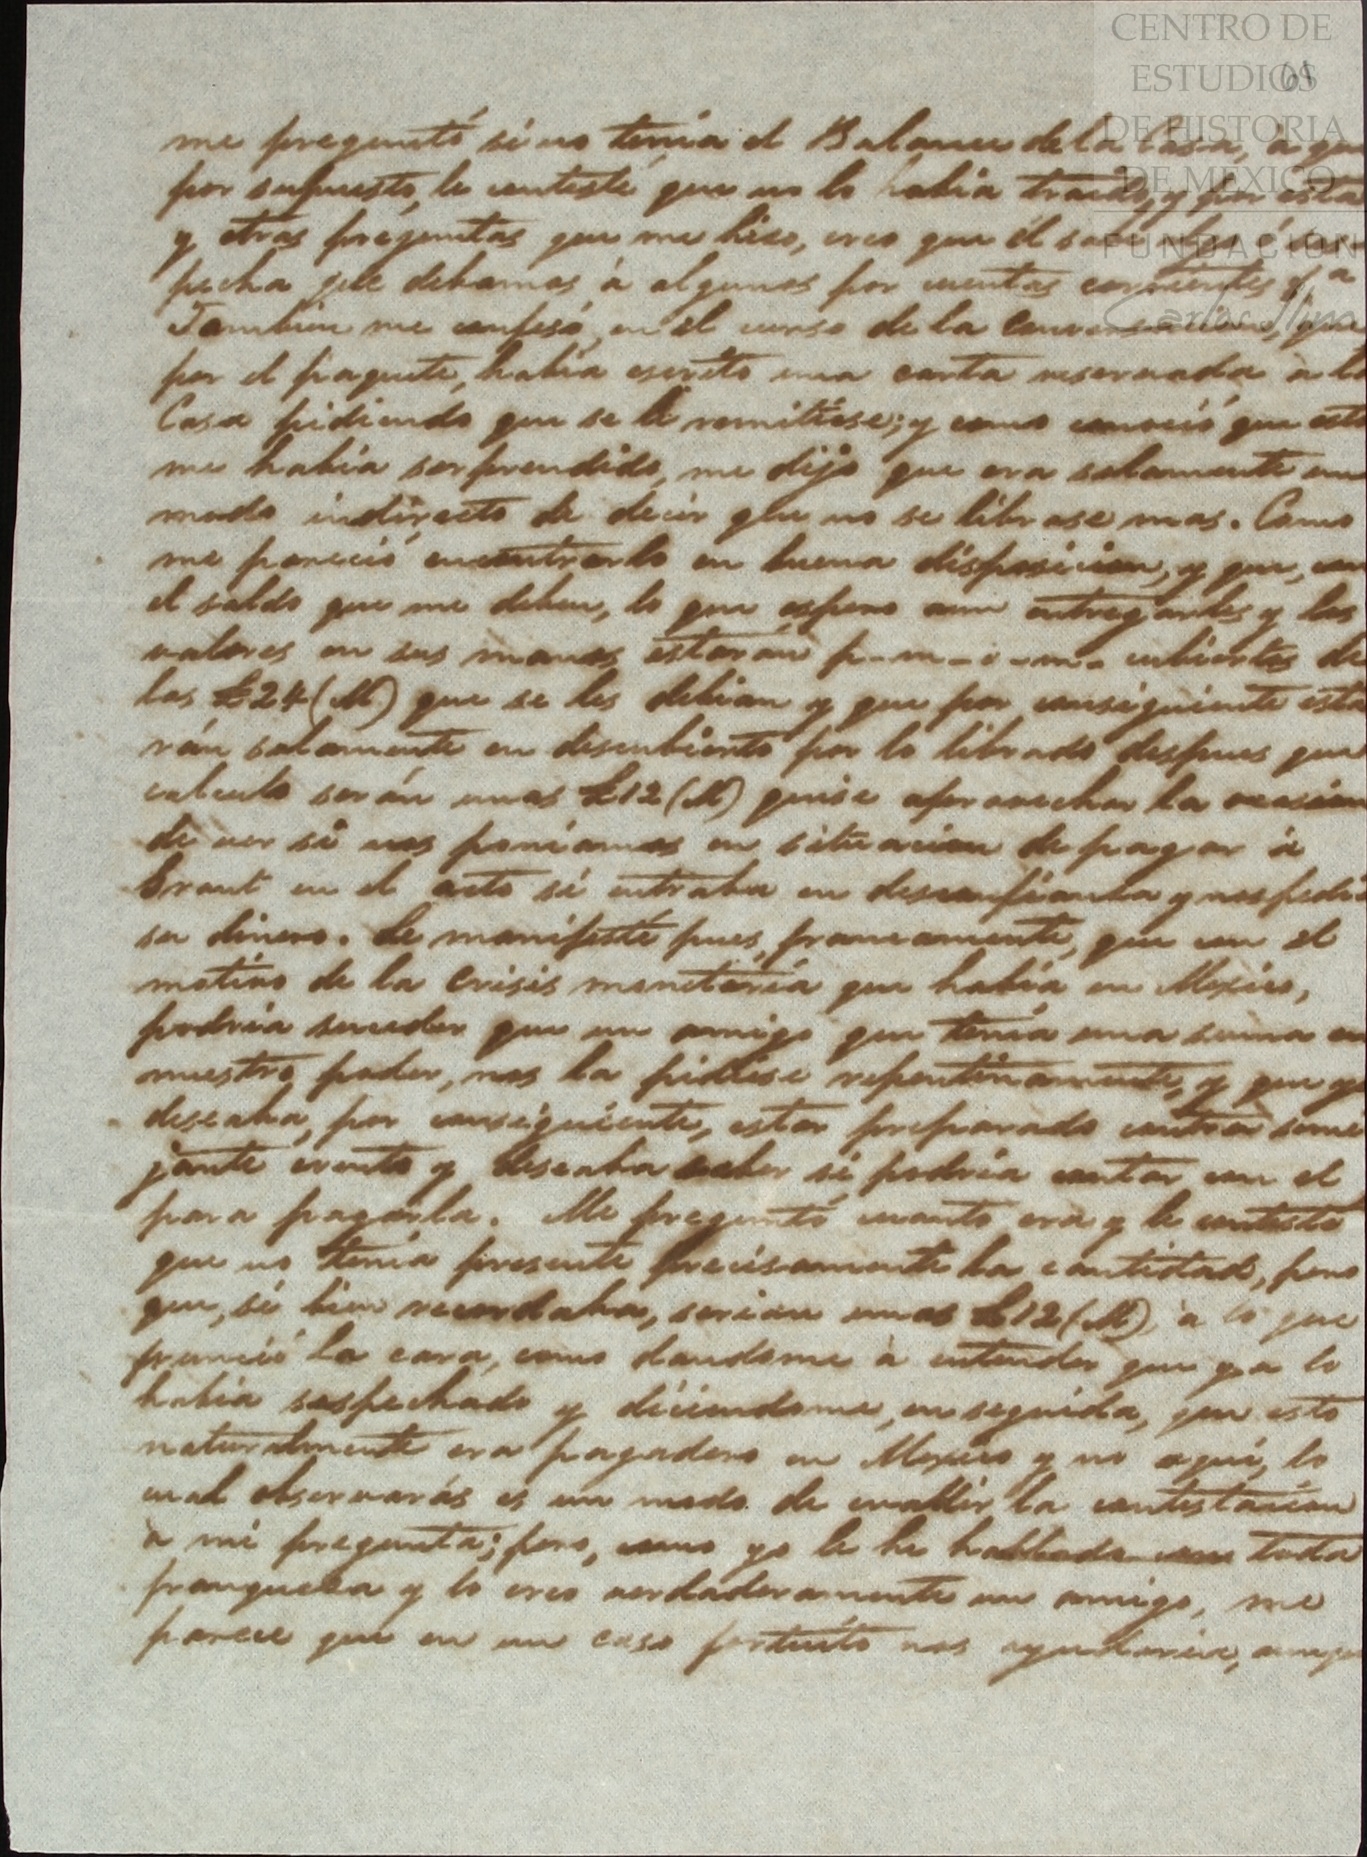 CENTRO DE
ESTUDIOS
DE HISTORIA
DE MÉXICO
FUNDACIÓN
Carlos Slim
61
me preguntó si no tenía el Balance de la Casa, à que
por supuesto, le contesté que no lo había traido, y por esta
y otras preguntas que me hiso, creo que él sabe
pecha que debamos à algunos por cuentas corrientes
Tambien me confesó, en el curso de la conversacion, que
por el paquete, había escrito una carta reservada à la
Casa pidiendo que se le remitiese; y como conoció que esto
me había sorprendido, me dijo que era solamente un
modo indirecto de decir que no se librase mas. Como
me pareció encontrarlo en buena disposicion, y que, con
el saldo que me deben, lo que espero aun entregarles y los
valores en sus manos estarán p-m-o-m- cubiertos de
las £24 (M) que se les debian y que por consiguiente esta
rán solamente en descubierto por lo librado despues que
calculo serán unas £12 (M) quise aprovechar la ocasion
de ver si nos poniamos en situacion de pagar à
en el acto si entraba en desconfianza y nos pedia
su dinero. Le manifesté pues, francamente, que con el
motivo de la crisis monetaria que había en Mexico,
podria suceder que un amigo que tenía una suma en
nuestro poder, nos la pidiese repentinamente, y que yo
deseaba, por consiguiente, estar preparado contra seme
jante evento y deseaba saber si podría contar con el
para pagarla. Me preguntó cuanto era y le contesté
que no tenía presente precisamente la cantidad, pero
que, si bien recordaba, serian unas £12 (M), à lo que
frunció la cara, como dandome à entender que ya lo
había sospechado y diciendome, en seguida, que esto
naturalmente era pagadero en Mexico y no aquí, lo
cual observarás es un modo de evadir la contestacion
à mi pregunta; pero, como yo le he hablado con toda
franqueza y lo creo verdaderamente un amigo, me
parece que en un caso fortuíto nos ayudaria, aunque